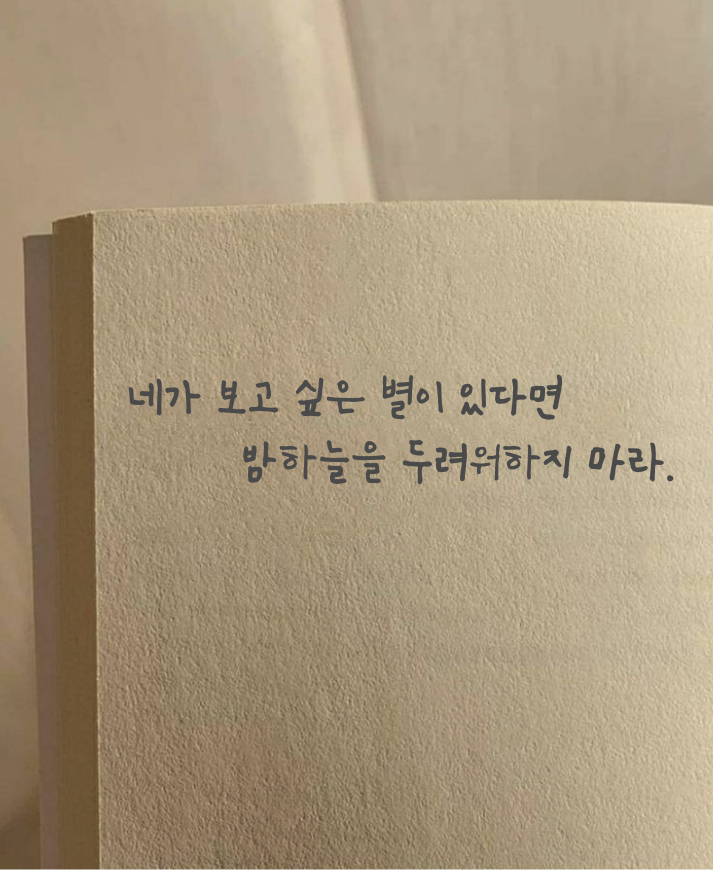 네가 보고 싶은 별이 있다면
밤하늘을 두려워하지 마라.